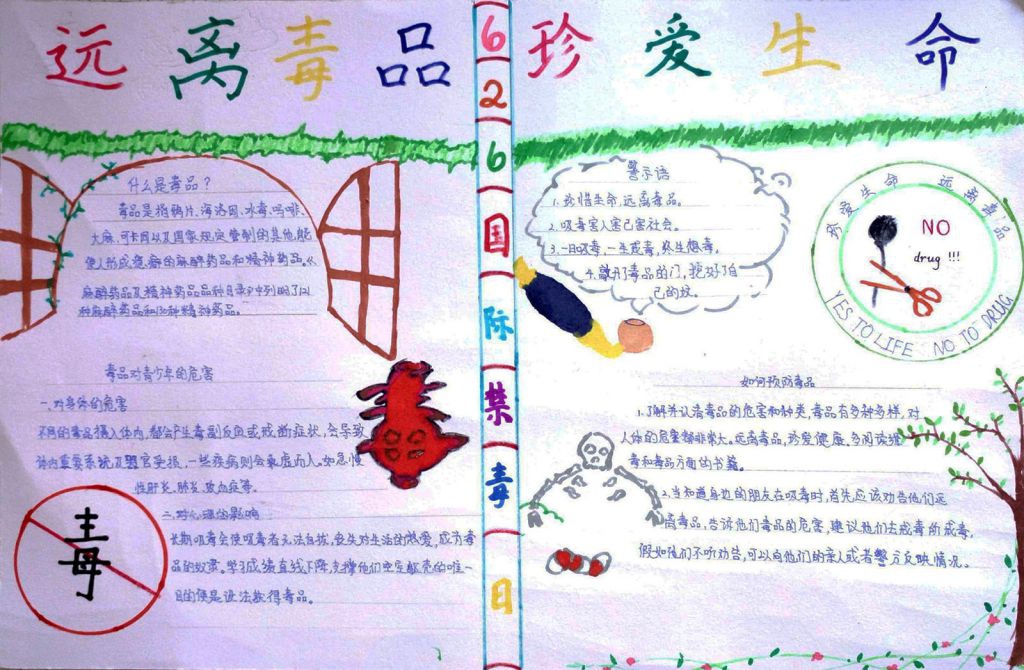 远离毒品
珍爱生命
626国际禁毒日
什么是毒品？
毒品是指鸦片、海洛因、冰毒、吗啡、
大麻、可卡因以及国家规定管制的其他能
使人形成瘾癖的麻醉药品和精神药品。《
麻醉药品及精神药品品种目录》中列明了121
种麻醉药品和130种精神药品。
毒品对青少年的危害
一、对身体的危害
不同的毒品摄入体内，都会产生毒副反应或戒断症状，会导致
体内重要系统及器官受损，一些疾病则会乘虚而入。如急慢
性肝炎、肺炎、败血症等。
二、对心理的影响
长期吸毒会使吸毒者无法自拔，丧失对生活的热爱，成为毒
品的奴隶。学习成绩直线下降，支撑他们空空躯壳的唯一
目的便是设法获得毒品。
毒
警示语
1.珍惜生命，远离毒品。
2.吸毒害人害己害社会。
3.一日吸毒，一生戒毒，终生想毒。
4.敲开了毒品的门，挖好了自
己的坟。
珍爱生命 远离毒品
NO
drug !!!
YES TO LIFE NO TO DRUG
如何预防毒品
1.了解并认清毒品的危害和种类，毒品有多种多样，对
人体的危害都非常大。远离毒品，珍爱健康。多阅读些
毒和毒品方面的书籍。
2.当知道身边的朋友在吸毒时，首先应该劝告他们远
离毒品，告诉他们毒品的危害，建议他们去戒毒所戒毒，
假如他们不听劝告，可以向他们的亲人或者警方反映情况。